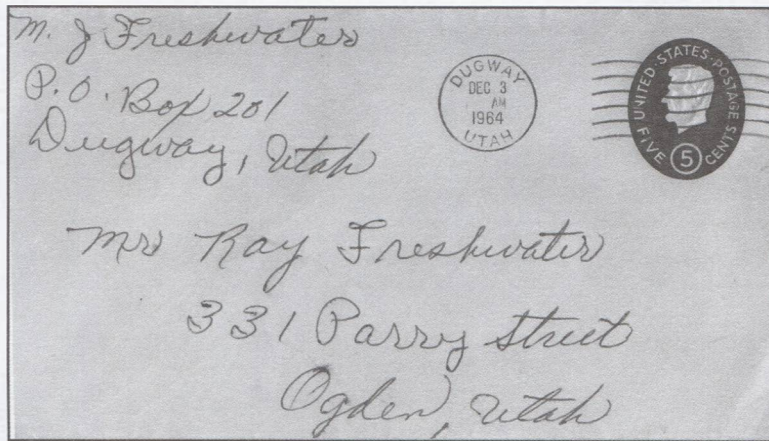 M. J Freshwater
P.O. Box 201
Dugway, Utah
DUGWAY
DEC 3
AM
1964
UTAH
UNITED·STATES·POSTAGE
FIVE 5 CENTS
Mrs Ray Freshwater
331 Parry Street
Ogden, Utah